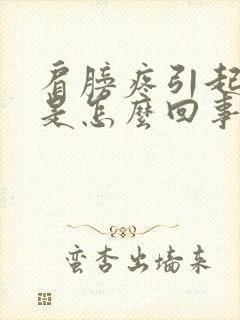 肩膀疼引起
是怎麼回事
蛮杏出墙来